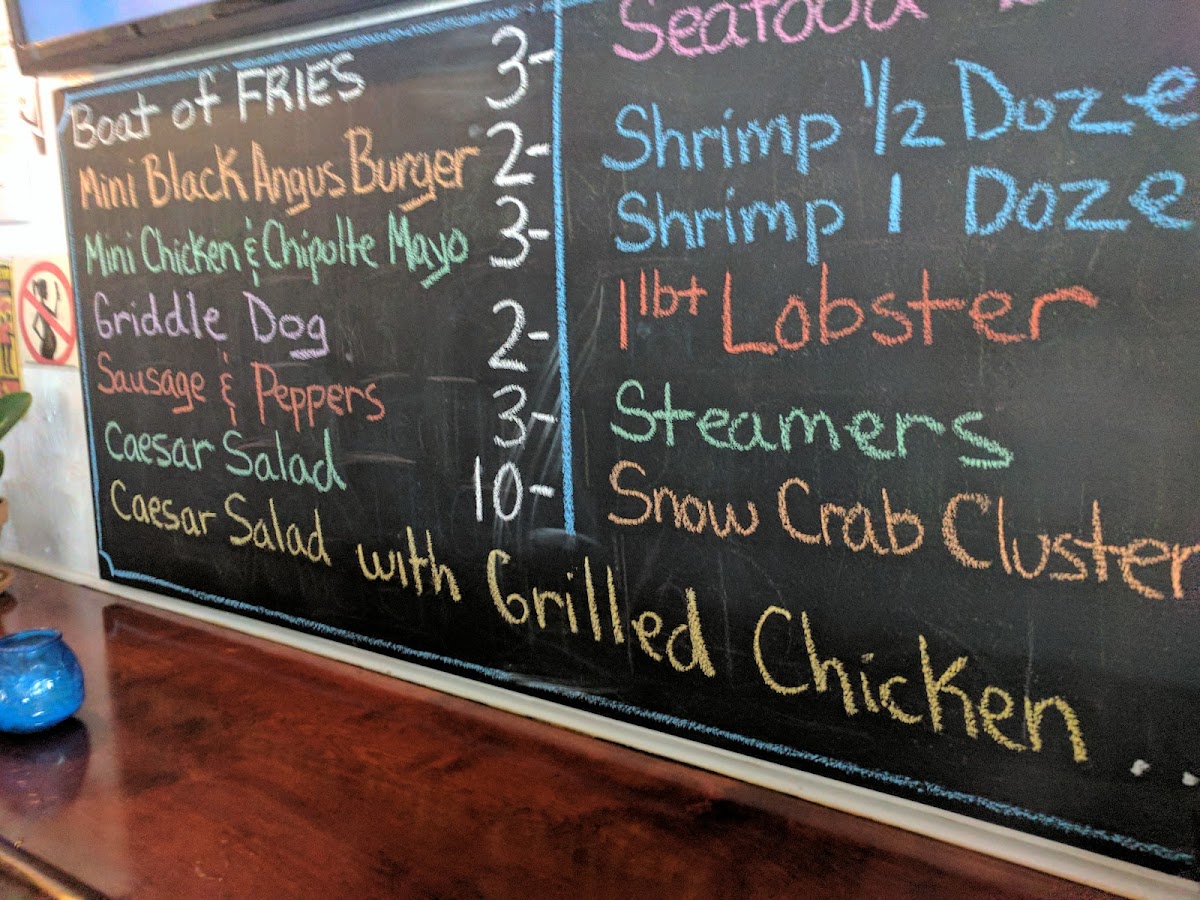 Boat of FRIES 3-
Mini Black Angus Burger 2-
Mini Chicken & Chipolte Mayo 3-
Griddle Dog 2-
Sausage & Peppers 3-
Caesar Salad 10-
Caesar Salad with Grilled Chicken ..
Seafood
Shrimp 1/2 Doze
Shrimp 1 Doze
1 lb+ Lobster
Steamers
Snow Crab Cluster